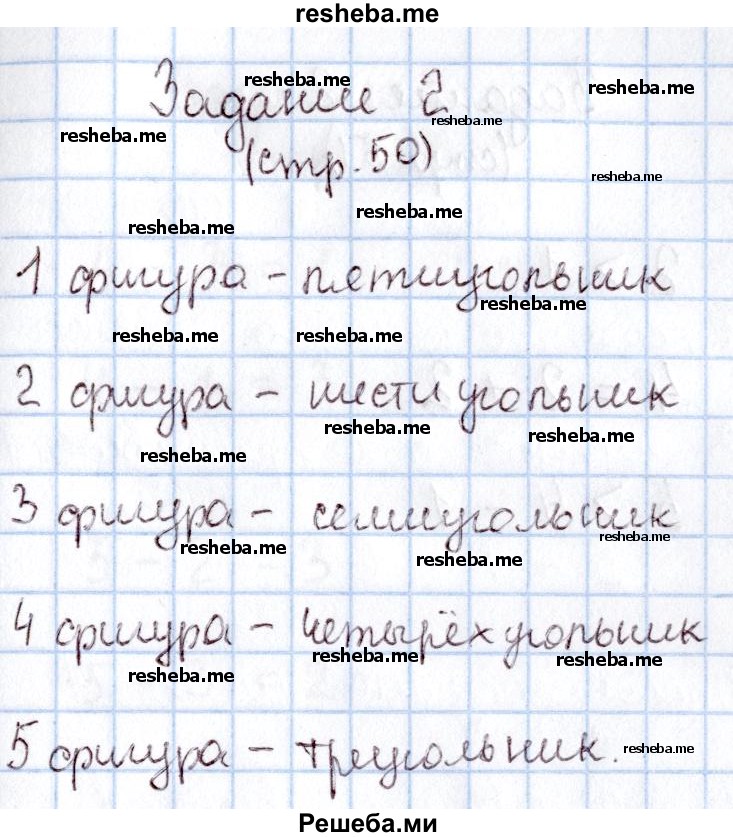 resheba.me
Задание 2
resheba.me
resheba.me
resheba.me
resheba.me
(стр. 50)
resheba.me
resheba.me
resheba.me
1 фигура - пятиугольник
resheba.me
resheba.me resheba.me
2 фигура - шестиугольник
resheba.me resheba.me
resheba.me
3 фигура - семиугольник
resheba.me
resheba.me
resheba.me
4 фигура - четырёхугольник
resheba.me resheba.me
resheba.me
5 фигура - треугольник.
resheba.me
Решеба.ми